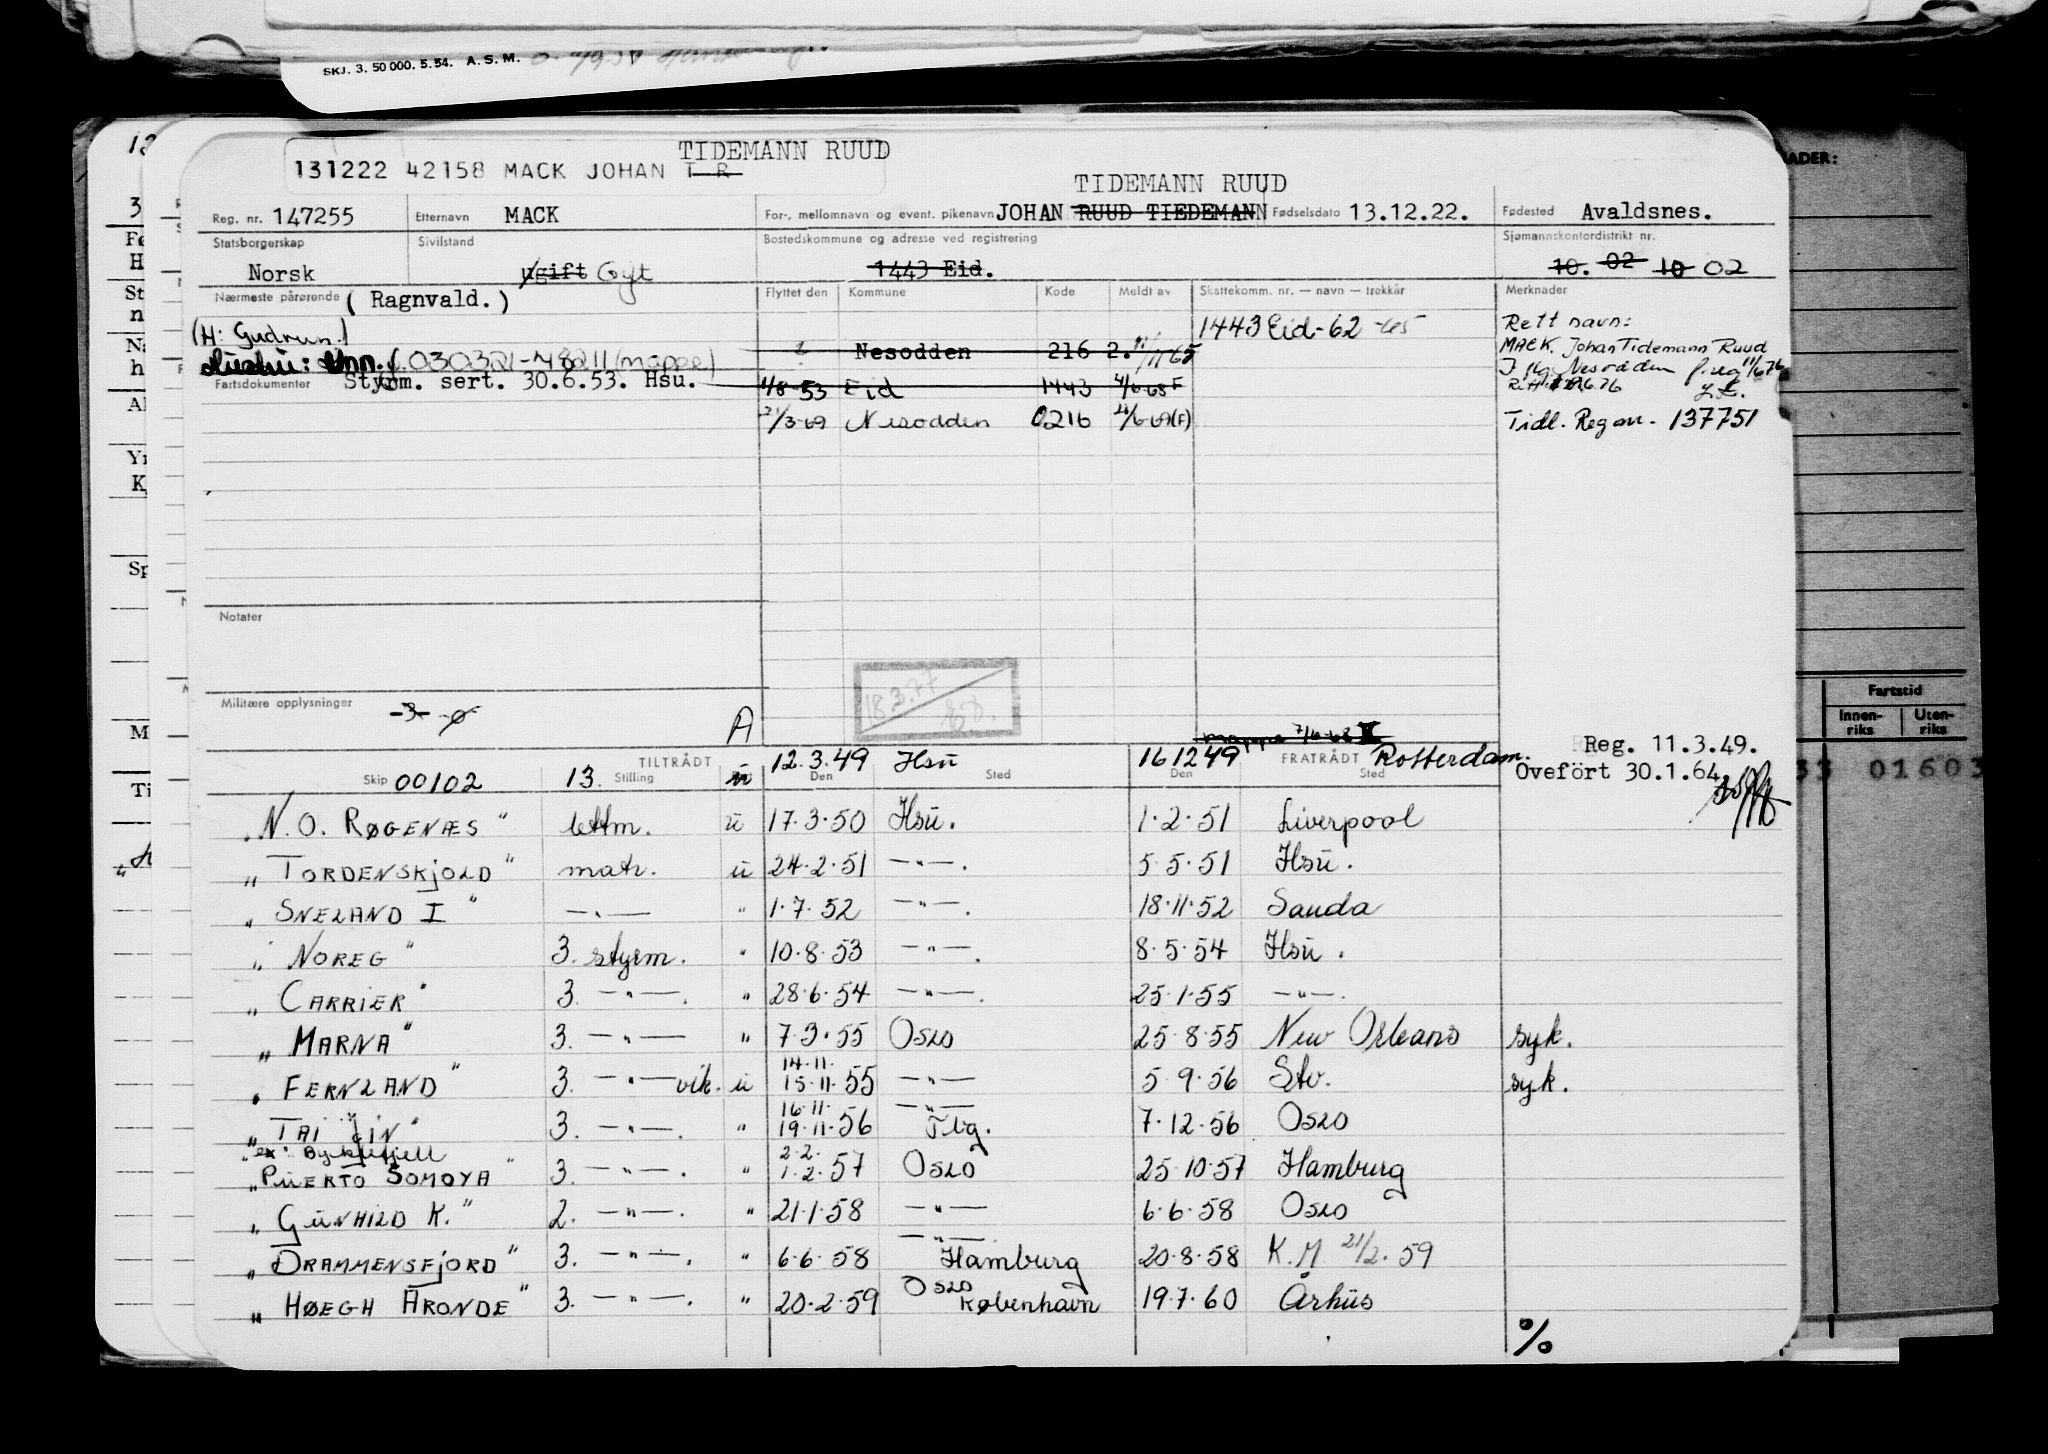 SKJ. 3. 50 000. 5. 54. A. S. M.
TIDEMANN RUUD
131222 42158 MACK JOHAN T R
TIDEMANN RUUD
Reg. nr. 147255 Etternavn MACK For-, mellomnavn og event. pikenavn JOHAN RUUD TIEDEMANN Fødselsdato 13.12.22. Fødested Avaldsnes.
Statsborgerskap Sivilstand Bostedskommune og adresse ved registrering Sjømannskontordistrikt nr.
Norsk Ugift Gift 1443 Eid. 10. 02 10 02
Nærmeste pårørende (Ragnvald.) Flyttet den Kommune Kode Meldt av Skattekomm. nr. — navn — trekkår Merknader
(H: Gudrun.) 1443 Eid-62 -65 Rett navn:
030321-48211 (mappe) Nesodden 216 2. 11/11 65 MACK. Johan Tidemann Ruud
Fartsdokumenter Styrm. sert. 30.6.53. Hsu. 1/8-53 Eid 1443 4/6-68 F
21/3-69 Nesodden 0216 Tidl. Reg nr. 137751
Notater
18.3.77
Militære opplysninger -3- A
mappe 7/6-68
Reg. 11.3.49.
Oveført 30.1.64.
TILTRÅDT 12.3.49 Hsu 161249 FRATRÅDT Rotterdam.
Skip 00102 13. Stilling Den Sted Den Sted
"N. O. RØGENÆS" lettm. u 17.3.50 Hsu. 1.2.51 Liverpool
"TORDENSKJOLD" matr. u 24.2.51 —"—. 5.5.51 Hsu.
"SNELAND I" —"— " 1.7.52 —"—. 18.11.52 Sauda
"NOREG" 3. styrm. " 10.8.53 —"—. 8.5.54 Hsu.
"CARRIER" 3. —"—. " 28.6.54 —"—. 25.1.55 —"—.
"MARNA" 3. —"— " 7.3.55 OSLO 25.8.55 New Orleans syk.
"FERNLAND" 3. —"— vik. u 14.11. 15.11.55 —"— 5.9.56 Stv. syk.
"TAI YIN" 3. —"—. " 16.11. 19.11.56 —"— Tbg. 7.12.56 OSLO
"ex Byklefjell
"PUERTO SOMOYA" 3. —"—. " 2.2. 1.2.57 OSLO 25.10.57 Hamburg
"GUNHILD K." 2. —"—. " 21.1.58 —"— 6.6.58 OSLO
"DRAMMENSFJORD" 3. —"—. " 6.6.58 —"— Hamburg 20.8.58 K.M 21/2.59
"HØEGH ARONDE" 3. —"—. " 20.2.59 OSLO København 19.7.60 Århus
%
ADER:
Fartstid
Innen-riks Uten-riks
33 01603